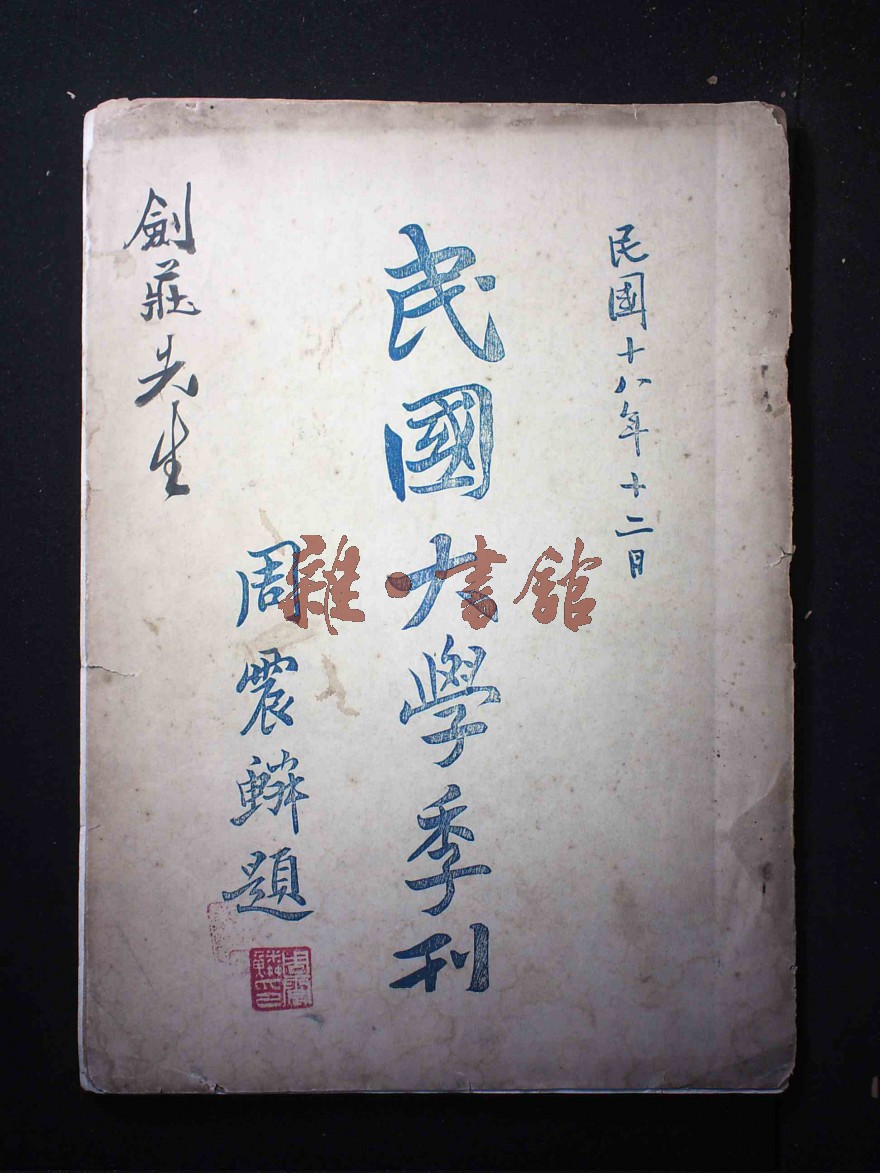 民國十八年十二月
民國大學季刊
周震鱗題
周震鱗印
劍莊先生
雜·書館